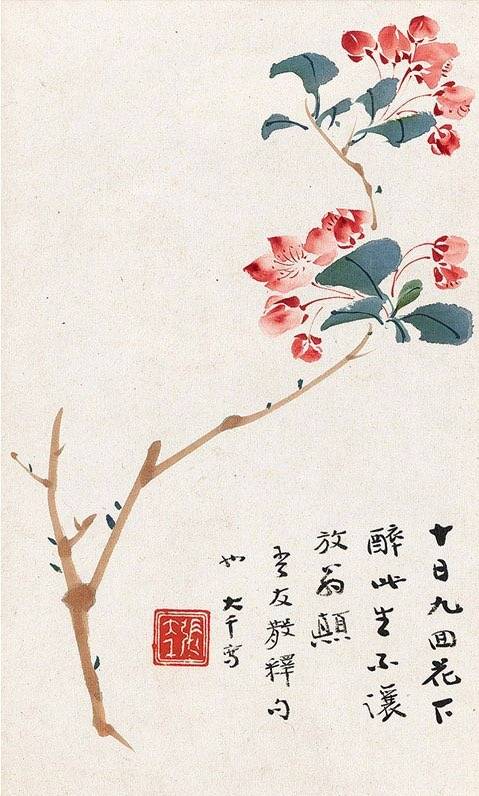 十日九回花下
醉此生不讓
放翁顛
友散釋句
也 大千寫
張